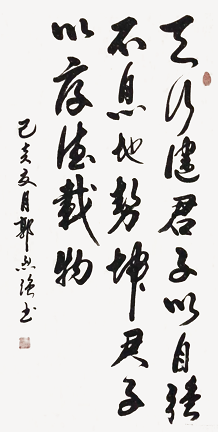 天行健君子以自強
不息地勢坤君子
以厚德載物
己亥夏月郭強书